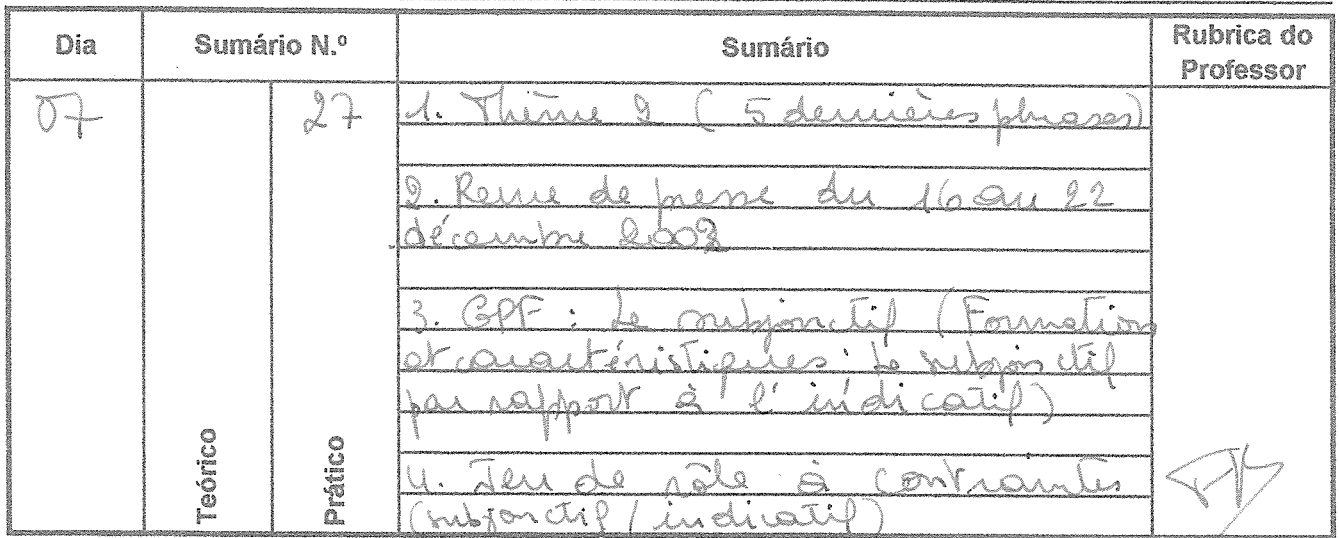 Dia Sumário N.º Sumário Rubrica do Professor
07 27 1. Thème 2 (5 dernières phrases)
2. Revue de presse du 16 au 22
décembre 2002
3. GPF : Le subjonctif (Formation
et caractéristiques : Le subjonctif
par rapport à l'indicatif)
4. Jeu de rôle à contraintes
(subjonctif / indicatif)
Teórico
Prático